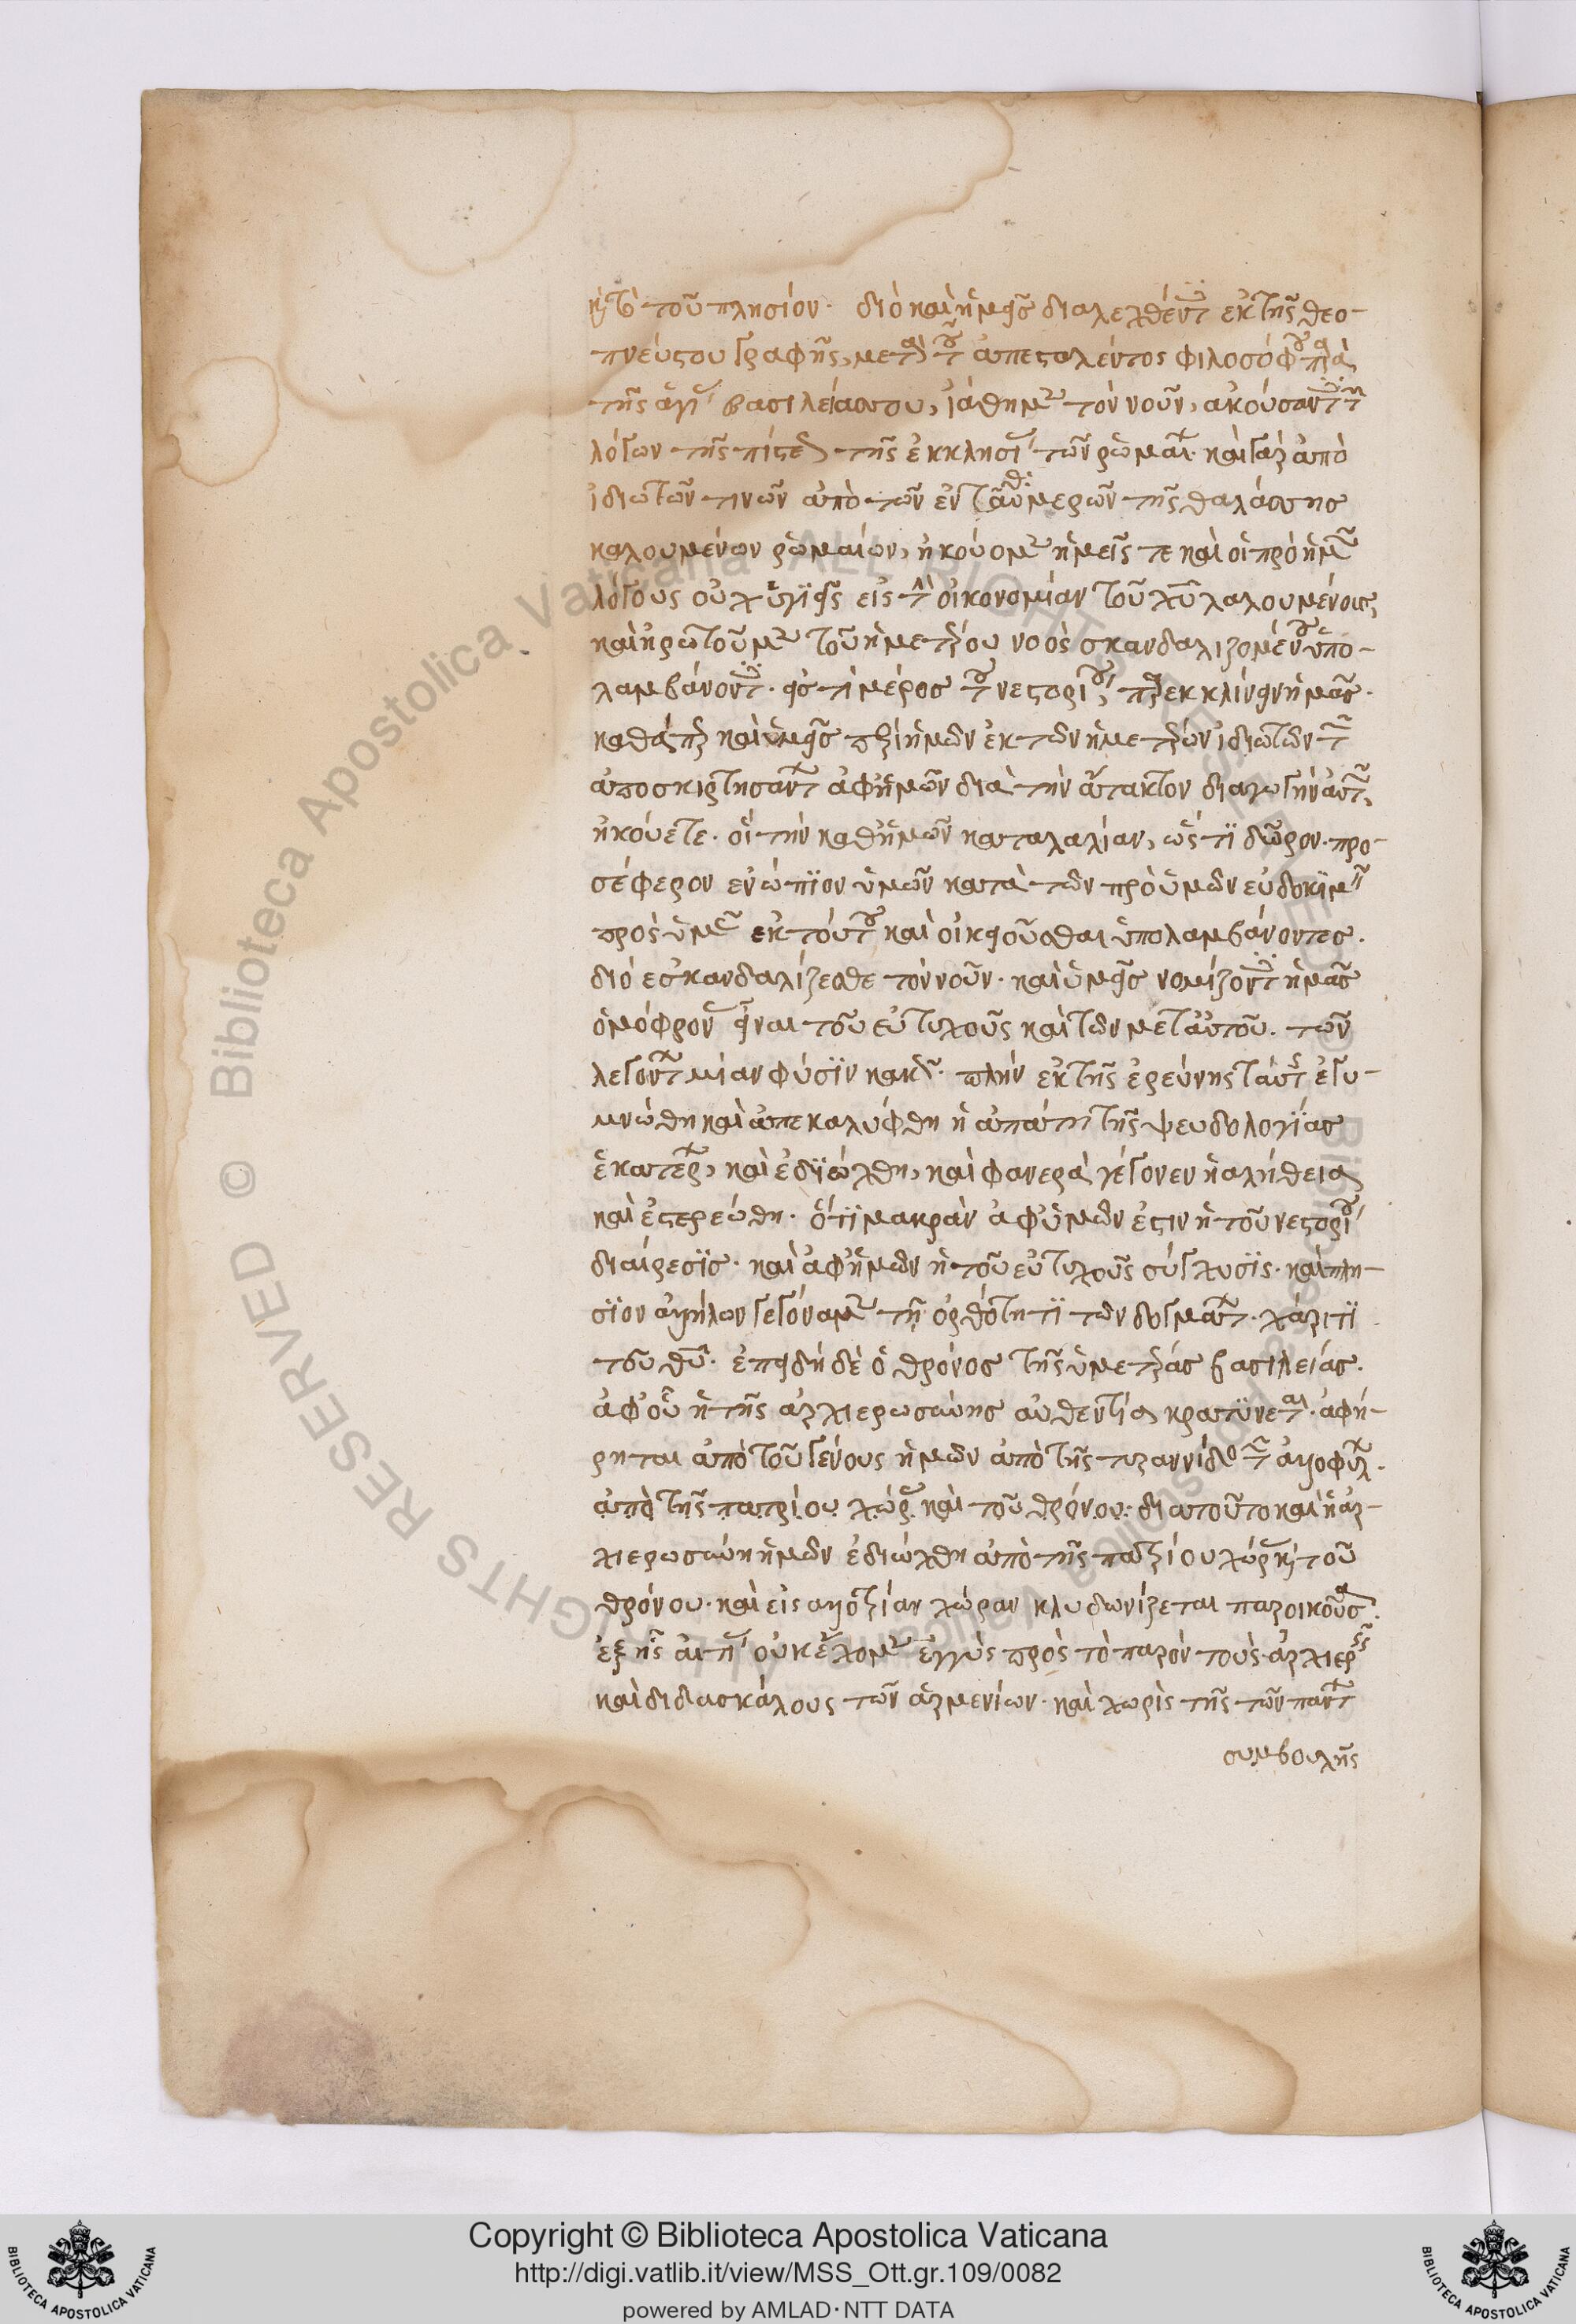 καὶ τὸ τοῦ πλησίον. διὸ καὶ ἡμεῖς διαλεχθέντες ἐκ τῆς θεο-
πνεύστου γραφῆς, μετὰ τοῦ ἀπεσταλέντος φιλοσόφου παρὰ
τῆς ἁγίας βασιλείας σου, ἰάθημεν τὸν νοῦν, ἀκούσαντες τῶν
λόγων τῆς πίστεως τῆς ἐκκλησίας τῶν ῥωμαίων. καὶ γὰρ ἀπὸ
ἰδιωτῶν τινῶν ἀπὸ τῶν ἐνταῦθα μερῶν τῆς θαλάσσης
καλουμένων ῥωμαίων, ἠκούομεν ἡμεῖς τε καὶ οἱ πρὸ ἡμῶν
λόγους οὐχ ὑγιεῖς εἰς τὴν οἰκονομίαν τοῦ χυ λαλουμένους,
καὶ τοῦ ἡμετέρου νοὸς σκανδαλιζομένου ὑπο-
λαμβάνοντες. εἰς τὶ μέρος τοῦ νεστορίου, παρεκκλίνειν ἡμᾶς.
καθάπερ καὶ ὑμεῖς περὶ ἡμῶν ἐκ τῶν ἡμετέρων ἰδιωτῶν τῶν
ἀποσκιρτησάντων ἀφ' ἡμῶν διὰ τὴν ἄτακτον διαγωγὴν αὐτῶν,
ἠκούετε. οἳ τὴν καθ' ἡμῶν καταλαλίαν, ὥς τι δῶρον προ-
σέφερον ἐνώπιον ὑμῶν κατὰ τῶν πρὸ ὑμῶν
πρὸς ὑμᾶς ἐκ τούτου καὶ οἰκειοῦσθαι ὑπολαμβάνοντες.
διὸ ἐσκανδαλίζεσθε τὸν νοῦν. καὶ ὑμεῖς νομίζοντες ἡμᾶς
ὁμόφρονας εἶναι τοῦ εὐτυχοῦς καὶ τῶν μετ' αὐτοῦ. τῶν
λεγόντων μίαν φύσιν κακῶς. πλὴν ἐκ τῆς ἐρεύνης ταύτης ἐγυ-
μνώθη καὶ ἀπεκαλύφθη ἡ ἀπάτη τῆς ψευδολογίας
ἑκατέρων, καὶ ἐδιώχθη, καὶ φανερὰ γέγονεν ἡ ἀλήθεια
καὶ ἐστερεώθη. ὅτι μακρὰν ἀφ' ὑμῶν ἐστιν ἡ τοῦ νεστορίου
διαίρεσις. καὶ ἀφ' ἡμῶν ἡ τοῦ εὐτυχοῦς σύγχυσις. καὶ πλη-
σίον ἀλλήλων γεγόναμεν τῇ ὀρθότητι τῶν δογμάτων. χάριτι
τοῦ θυ. ἐπειδὴ δὲ ὁ θρόνος τῆς ἡμετέρας βασιλείας.
ἀφ' οὗ ἡ τῆς ἀρχιερωσύνης αὐθεντία κρατύνεται. ἀφή-
ρηται ἀπὸ τοῦ γένους ἡμῶν ἀπὸ τῆς τυραννίδος τῶν ἀλλοφύλων.
ἀπὸ τῆς πατρίου χώρας καὶ τοῦ θρόνου. διὰ τοῦτο καὶ ἡ ἀρ-
χιερωσύνη ἡμῶν ἐδιώχθη ἀπὸ τῆς πατρίου χώρας καὶ τοῦ
θρόνου. καὶ εἰς ἀλλοτρίαν χώραν κλυδωνίζεται παροικοῦσα.
ἐξ ἧς αἰτίας οὐκ ἔχομεν ἐγγὺς πρὸς τὸ παρὸν τοὺς ἀρχιερεῖς
καὶ διδασκάλους τῶν ἀρμενίων. καὶ χωρὶς τῆς τῶν πάντων
συμβουλῆς
Copyright © Biblioteca Apostolica Vaticana
http://digi.vatlib.it/view/MSS_Ott.gr.109/0082
powered by AMLAD·NTT DATA